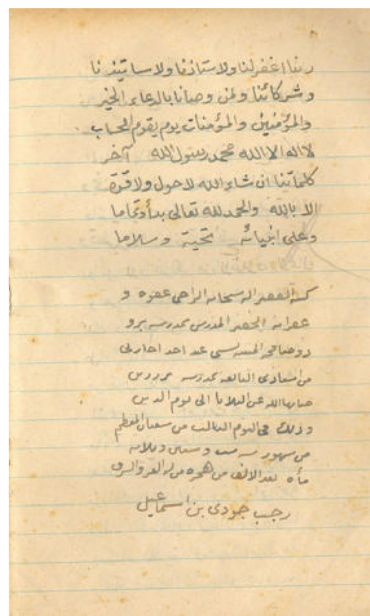 ربنا اغفر لنا ولاستاذنا ولاساتيذنا
وشركائنا ولمن وصانا بالدعاء الخير
والمؤمنين والمؤمنات يوم يقوم الحساب
لا اله الا الله محمد رسول الله آخر
كلماتنا ان شاء الله لا حول ولا قوة
الا بالله والحمد لله تعالى بدأ وتماما
وعلى انبيائه تحية وسلاما
كتبه الفقير اليه سبحانه الراجى عفوه و
غفرانه المدرس بمدرسه
من بمدرسه
صانها الله عن البلايا الى يوم الدين
وذلك فى اليوم الثالث من شعبان المعظم
من شهور سنه ست وسبعين وثلاثه
مأه بعد الالف من هجره من له العز والشرف
رجب جودى بن اسماعيل